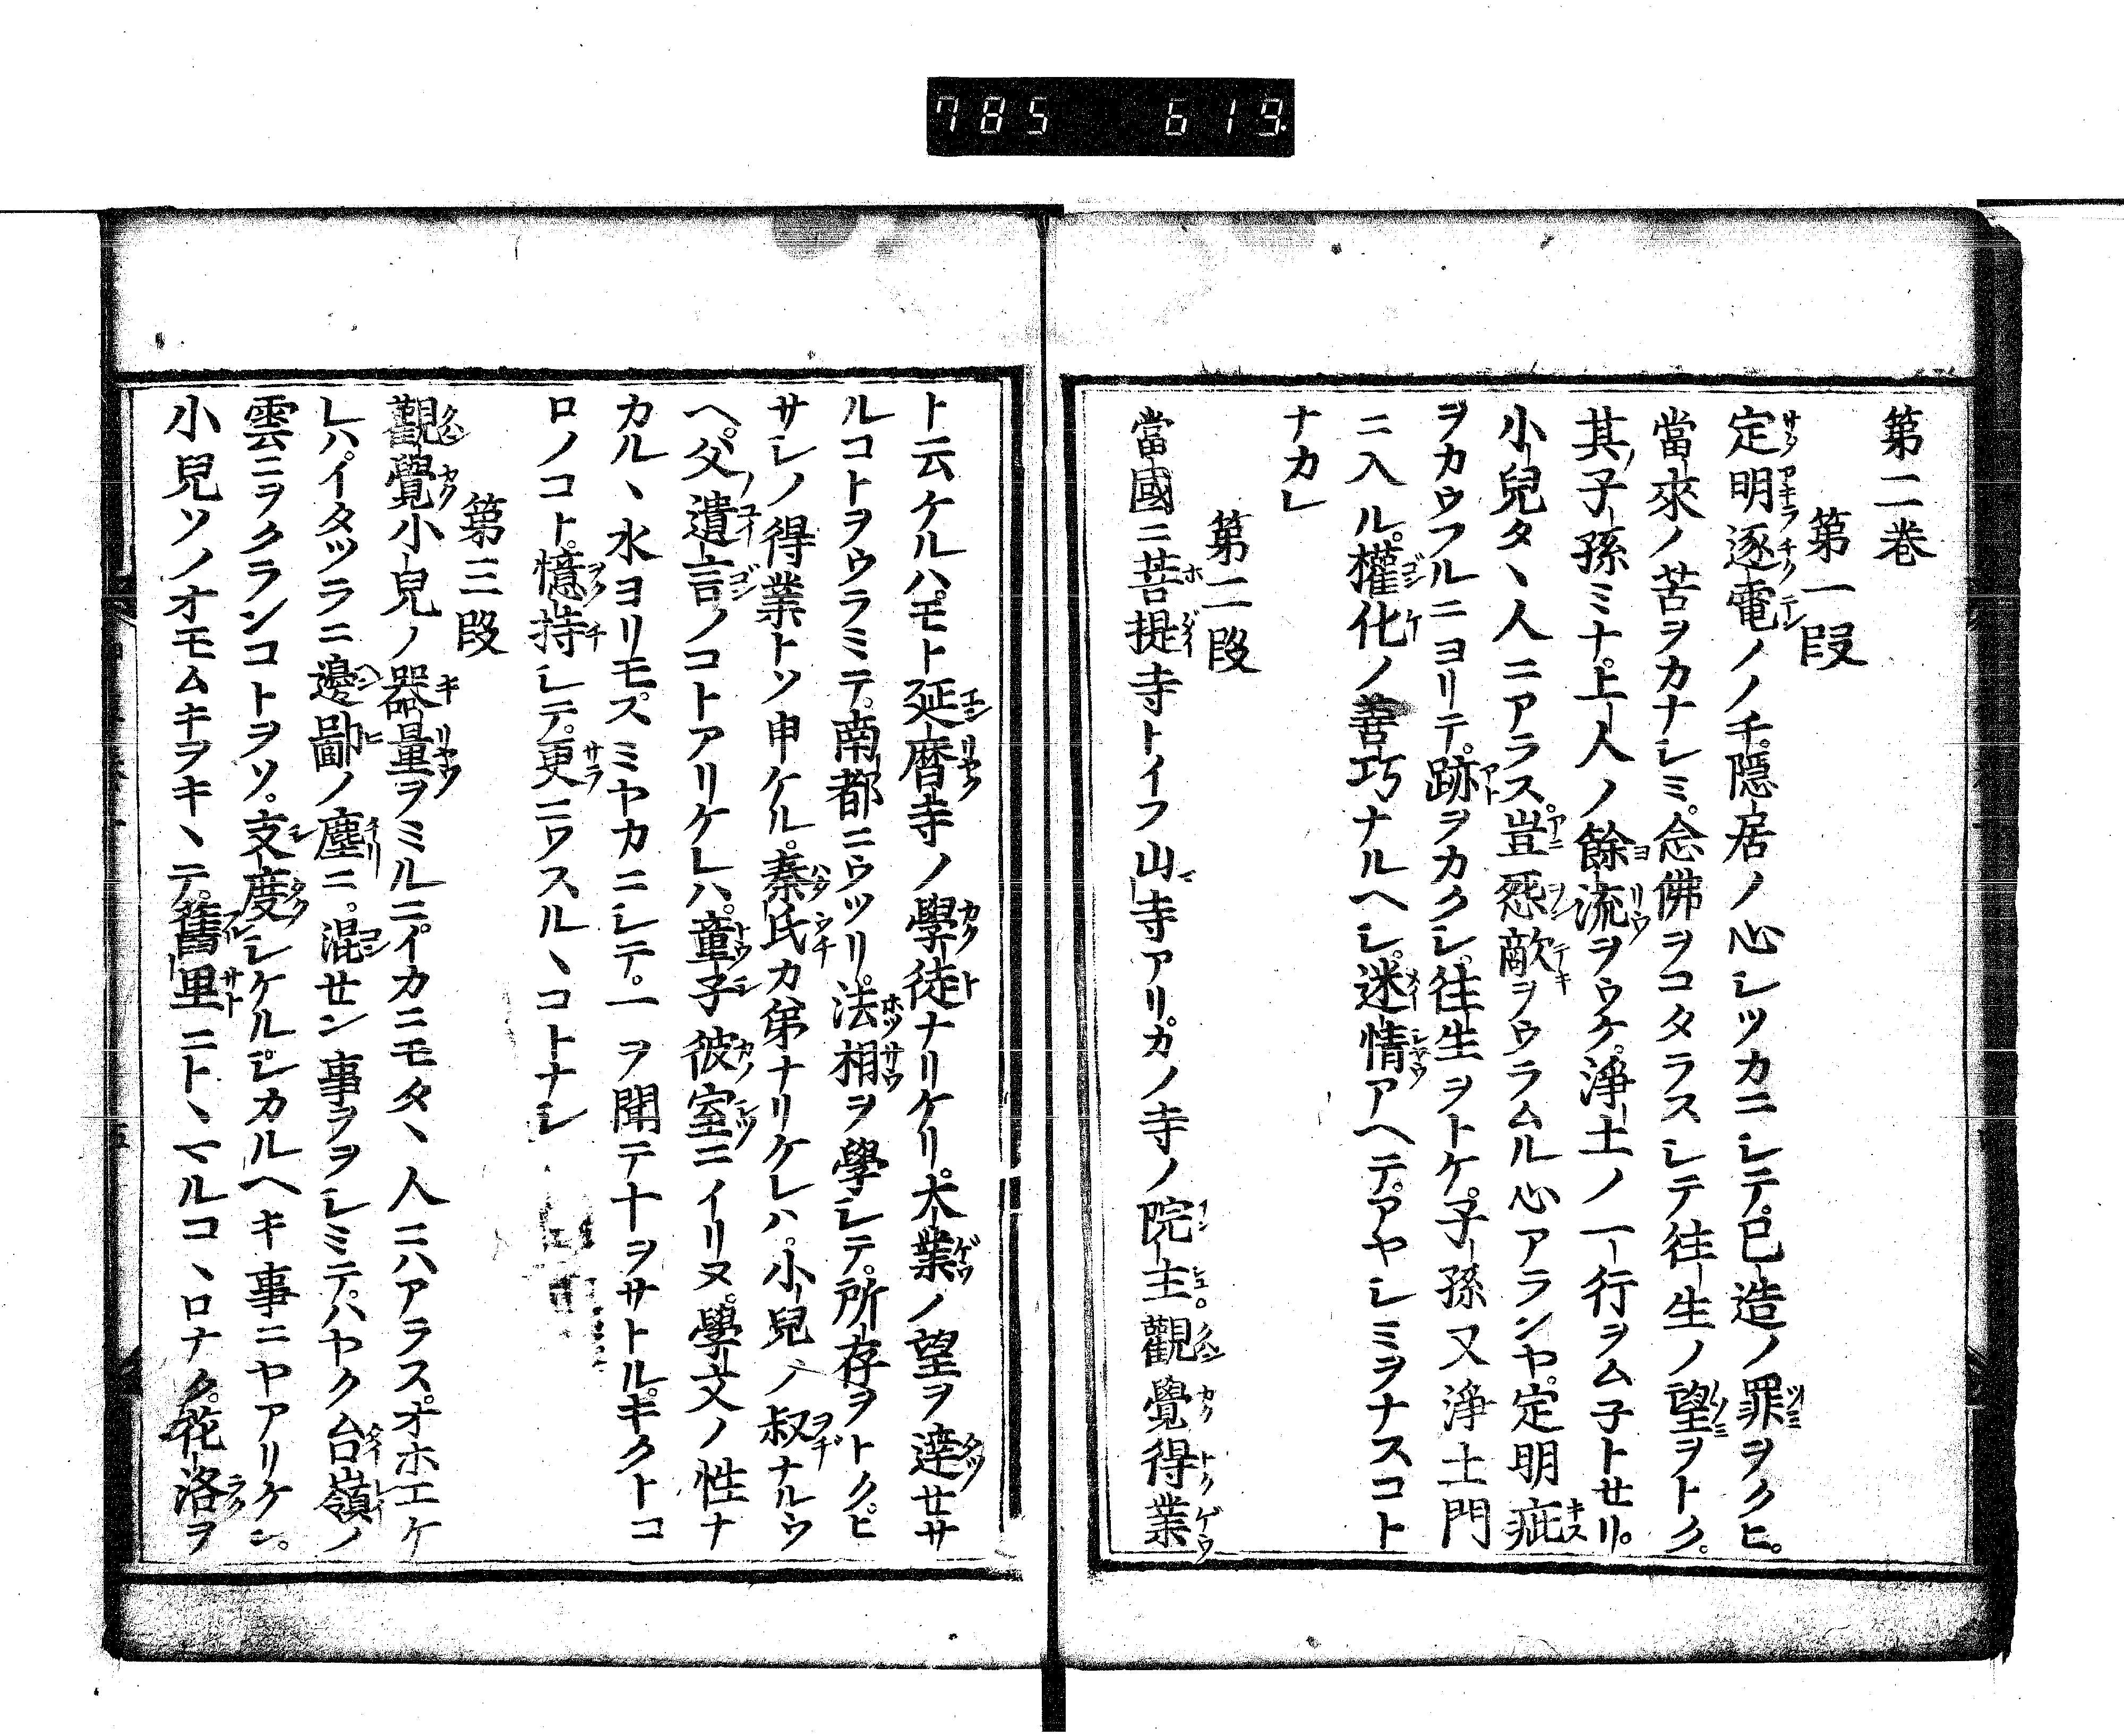 785 619
第二巻
第一段
定明逐電ノノチ。隠居ノ心シツカニシテ。已造ノ罪ヲクヒ。
當來ノ苦ヲカナシミ。念佛ヲコタラスシテ往生ノ望ヲトク。
其ノ子孫ミナ。上人ノ餘流ヲウケ。浄土ノ一行ヲムネトセリ。
小兒タヽ人ニアラス。豈怨敵ヲウラムル心アランヤ。定明疵
ヲカウフルニヨリテ。跡ヲカクシ。往生ヲトケ。子孫又浄土門
ニ入ル。權化ノ善巧ナルヘシ。迷情アヘテ。アヤシミヲナスコト
ナカレ
第二段
當國ニ菩提寺トイフ山寺アリ。カノ寺ノ院主。觀覺得業
ト云ケルハ。モト延暦寺ノ學徒ナリケリ。大業ノ望ヲ達セサ
ルコトヲウラミテ。南都ニウツリ。法相ヲ學シテ。所存ヲトク。ヒ
サシノ得業トソ申ケル。秦氏カ弟ナリケレハ。小兒ノ叔ナルウ
ヘ。父ノ遺言ノコトアリケレハ。童子彼室ニイリヌ。學文ノ性ナ
カルヽ水ヨリモ。スミヤカニシテ。一ヲ聞テ十ヲサトル。キクトコ
ロノコト。憶持シテ。更ニワスルヽコトナシ
第三段
觀覺小兒ノ器量ヲミルニ。イカニモタヽ人ニハアラス。オホエケ
レハ。イタツラニ邊鄙ノ塵ニ。混セン事ヲヲシミテ。ハヤク台嶺ノ
雲ニヲクランコトヲソ。支度シケル。シカルヘキ事ニヤアリケン。
小兒ソノオモムキヲキヽテ。舊里ニトヽマルコヽロナク。花洛ヲ